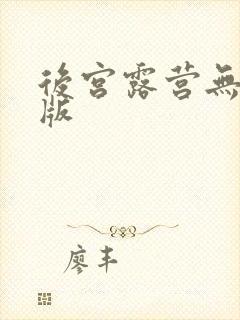 後宮露营無
版
廖丰